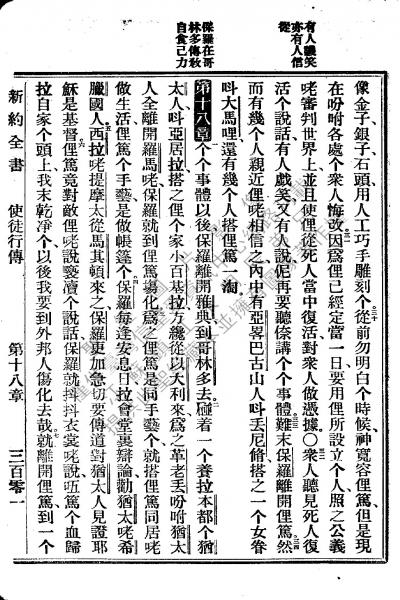 有人譏笑
亦有人信
從
保羅在哥
林多傳教
自食己力
像金子、銀子、石頭、用人工巧手雕刻个從前勿明白个時候、神寬容俚篤、但是現
在吩咐各處个衆人悔改、因爲俚已經定當一日、要用俚所設立个人、照之公義
咾審判世界上、並且使俚從死人當中復活、對衆人做憑據○衆人聽見死人復
活个說話、有人戲笑、又有人說、伲再要聽倷講个个事體、難末保羅離開俚篤、然
而有幾个人親近俚咾相信之、內中有亞畧巴古山人呌丟尼修搭之一个女眷
呌大馬哩、還有幾个人搭俚篤一淘
第十八章 个个事體以後、保羅離開雅典到哥林多去、碰着一个養拉本都个猶
太人、呌亞居拉、搭之俚个家小百基拉、方纔從以大利來、爲之革老丟吩咐猶太
人全離開羅馬咾、保羅就到俚篤塲化、爲之俚篤是同手藝个、就搭俚篤同居咾
做生活、俚篤个手藝是做帳篷个、保羅每逢安息日、拉會堂裏辯論、勸猶太咾希
臘國人、西拉咾提摩太從馬其頓來之、保羅更加急切要傳道、對猶太人見證耶
穌是基督、俚篤竟對敵俚咾說褻瀆个說話、保羅就抖抖衣裳咾說、唔篤个血歸
拉自家个頭上、我末乾凈个、以後我要到外邦人塲化去哉、就離開俚篤、到一个
新約全書 使徒行傳 第十八章 三百零一